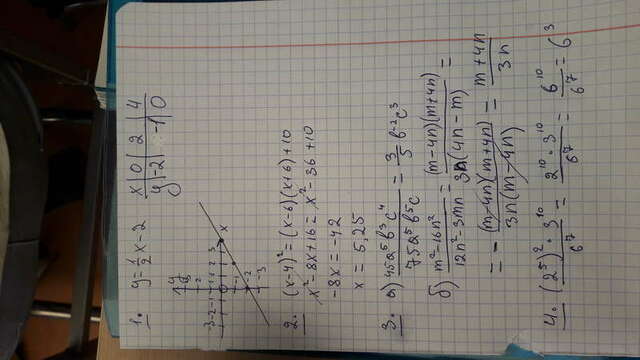 1. y=½x-2 x | 0 | 2 | 4
y | -2 | -1 | 0
y
3
2
1
-3 -2 -1 1 2 3 x
-1
-2
-3
2. (x-4)² = (x-6)(x+6)+10
x²-8x+16 = x²-36+10
-8x = -42
x = 5,25
3. a) 45a⁵b³c⁴/75a⁵b⁵c = 3/5 b⁻²c³
б) m²-16n²/12n²-3mn = (m-4n)(m+4n)/3n(4n-m) =
= - (m-4n)(m+4n)/3n(m-4n) = m+4n/3n
4. (2⁵)²·3¹⁰/6⁷ = 2¹⁰·3¹⁰/6⁷ = 6¹⁰/6⁷ = 6³